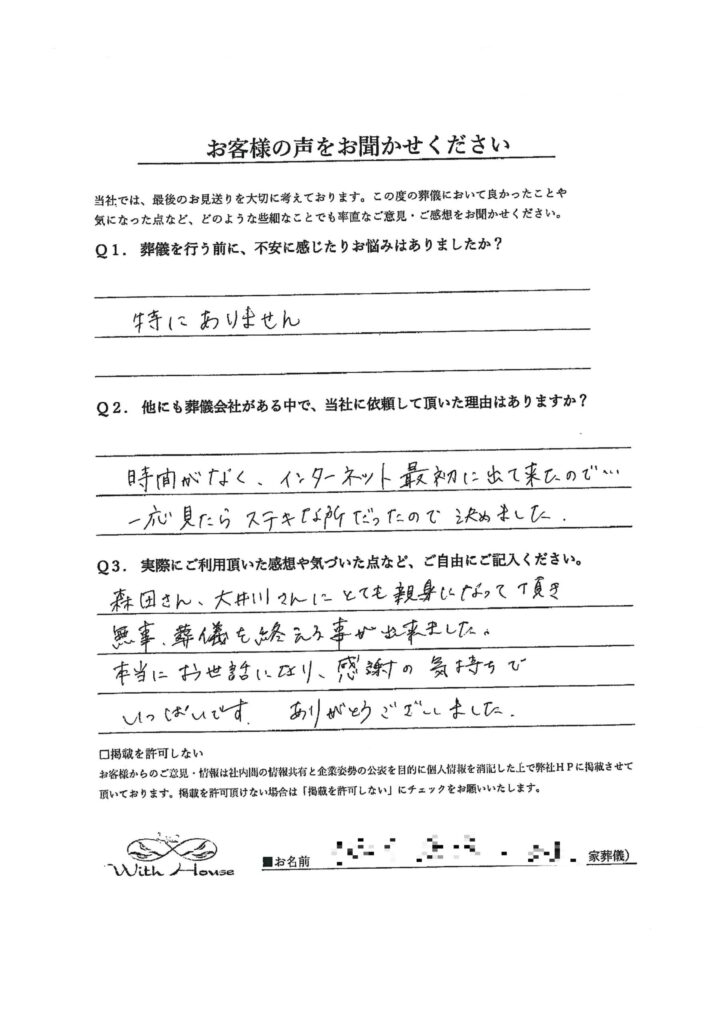 お客様の声をお聞かせください
当社では、最後のお見送りを大切に考えております。この度の葬儀において良かったことや
気になった点など、どのような些細なことでも率直なご意見・ご感想をお聞かせください。
Q1. 葬儀を行う前に、不安に感じたりお悩みはありましたか？
特にありません
Q2. 他にも葬儀会社がある中で、当社に依頼して頂いた理由はありますか？
時間がなく、インターネット最初に出て来たので…
一応見たらステキな所だったので決めました.
Q3. 実際にご利用頂いた感想や気づいた点など、ご自由にご記入ください。
森田さん、大井川さんにとても親身になって頂き
無事、葬儀を終える事が出来ました。
本当にお世話になり、感謝の気持ちで
いっぱいです. ありがとうございました.
□掲載を許可しない
お客様からのご意見・情報は社内間の情報共有と企業姿勢の公表を目的に個人情報を消記した上で弊社HPに掲載させて
頂いております。掲載を許可頂けない場合は「掲載を許可しない」にチェックをお願いいたします。
With House
■お名前 家葬儀）